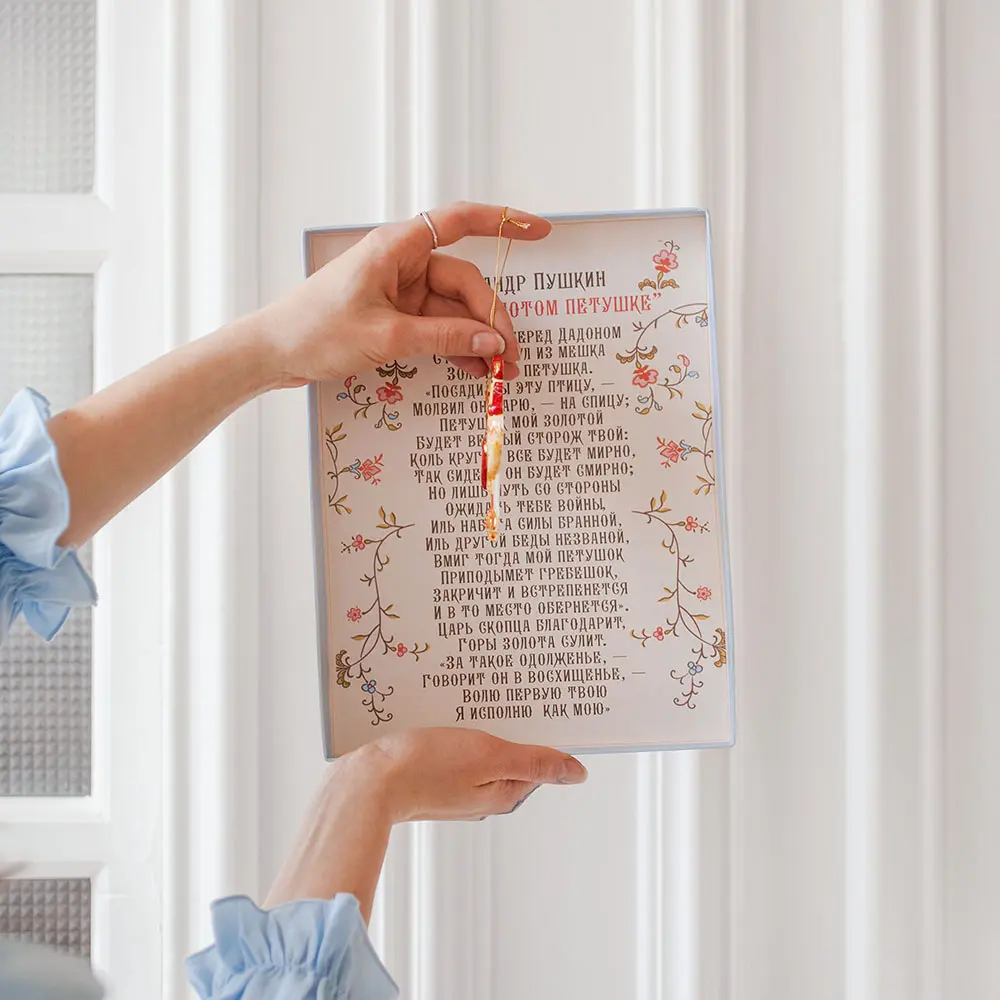 НДР ПУШКИН
ОТОМ ПЕТУШКЕ”
ЕРЕД ДАДОНОМ
УЛ ИЗ МЕШКА
ЗОЛО ПЕТУШКА.
«ПОСАДИ Ы ЭТУ ПТИЦУ, —
МОЛВИЛ ОН АРЮ, — НА СПИЦУ;
ПЕТУШ МОЙ ЗОЛОТОЙ
БУДЕТ ВЕ ЫЙ СТОРОЖ ТВОЙ:
КОЛЬ КРУГ ВСЕ БУДЕТ МИРНО,
ТАК СИДЕ ОН БУДЕТ СМИРНО;
НО ЛИШ УТЬ СО СТОРОНЫ
ОЖИДА Ь ТЕБЕ ВОЙНЫ,
ИЛЬ НАБ ГА СИЛЫ БРАННОЙ,
ИЛЬ ДРУГОЙ БЕДЫ НЕЗВАНОЙ,
ВМИГ ТОГДА МОЙ ПЕТУШОК
ПРИПОДЫМЕТ ГРЕБЕШОК,
ЗАКРИЧИТ И ВСТРЕПЕНЕТСЯ
И В ТО МЕСТО ОБЕРНЕТСЯ».
ЦАРЬ СКОПЦА БЛАГОДАРИТ,
ГОРЫ ЗОЛОТА СУЛИТ.
«ЗА ТАКОЕ ОДОЛЖЕНЬЕ, —
ГОВОРИТ ОН В ВОСХИЩЕНЬЕ, —
ВОЛЮ ПЕРВУЮ ТВОЮ
Я ИСПОЛНЮ КАК МОЮ»